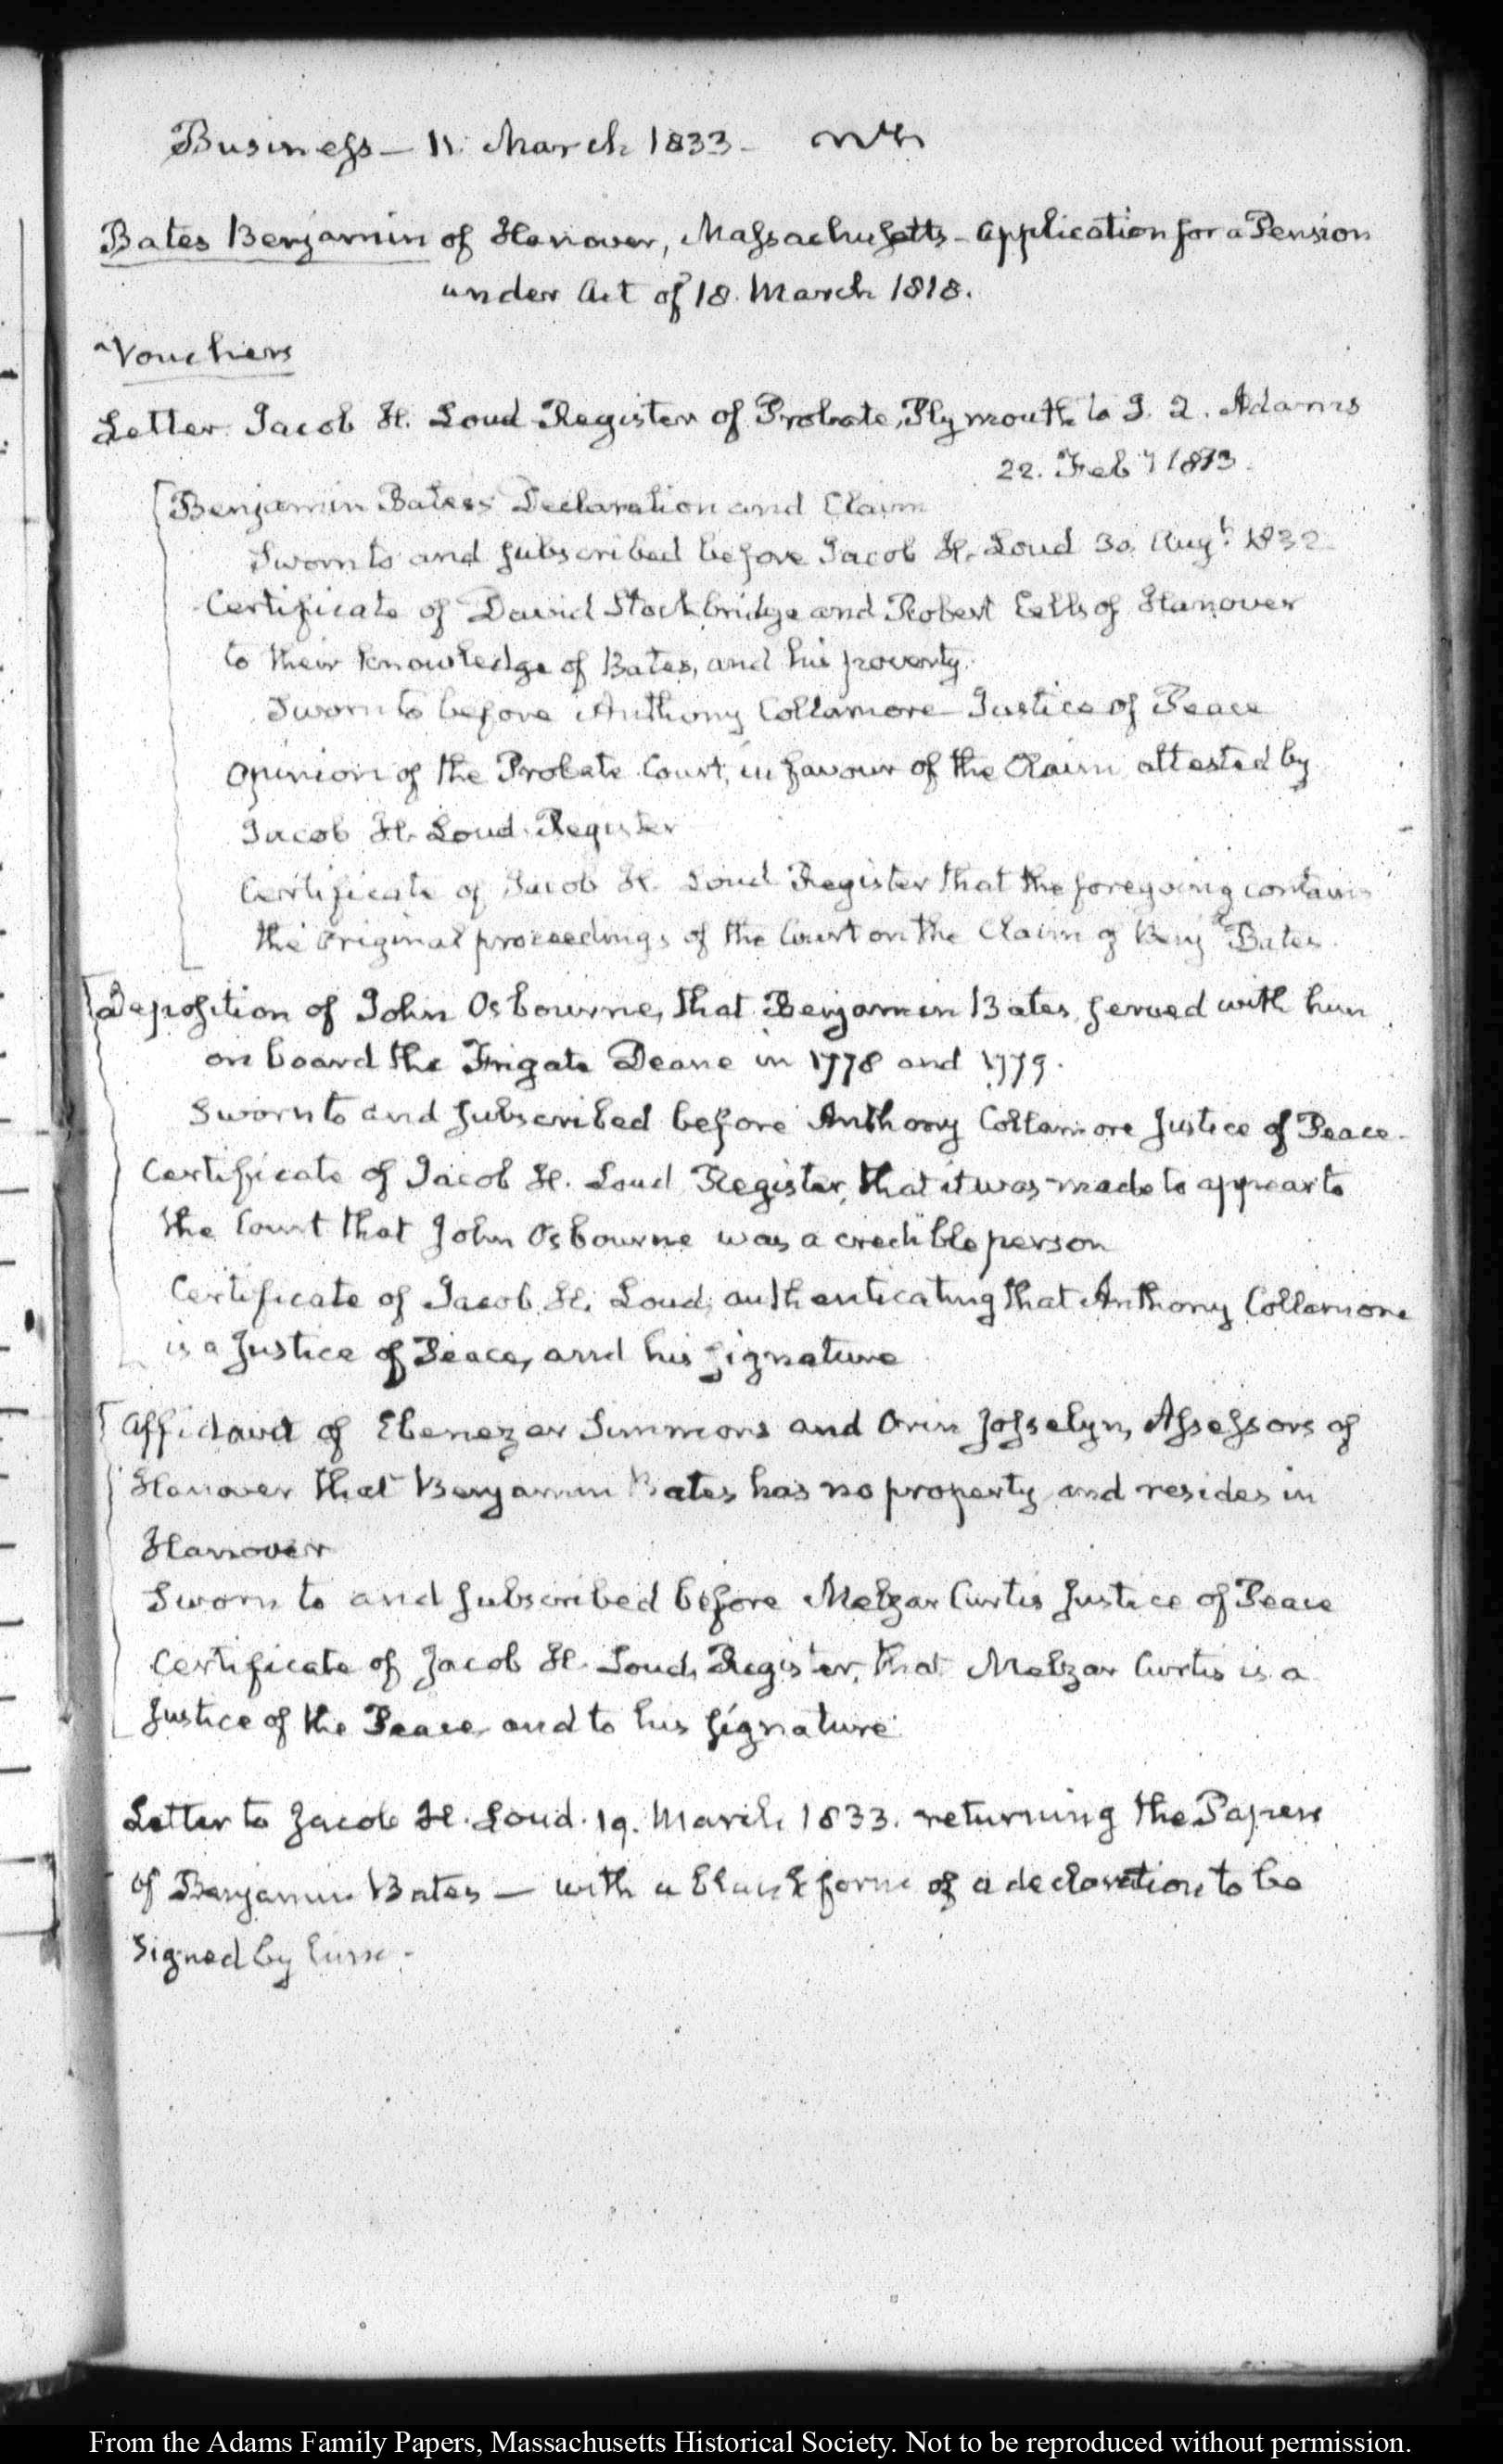 Business — 11. March 1833 —
Bates Benjamin of Hanover, Massachusetts — Application for a Pension
under Act of 18. March 1818.
Vouchers
Letter Jacob H. Loud Register of Probate, Plymouth to J. Q. Adams
22. Feby 1833.
Benjamin Bates's Declaration and Claim
Sworn to and subscribed before Jacob H. Loud 30. Augt. 1832
Certificate of David Stockbridge and Robert Eells of Hanover
to their knowledge of Bates, and his poverty.
Sworn to before Anthony Collamore Justice of Peace
Opinion of the Probate Court, in favour of the Claim attested by
Jacob H. Loud Register
Certificate of Jacob H. Loud Register that the foregoing contains
the original proceedings of the Court on the Claim of Benjn Bates.
Deposition of John Osbourne, that Benjamin Bates, served with him
on board the Frigate Deane in 1778 and 1779.
Sworn to and subscribed before Anthony Collamore Justice of Peace —
Certificate of Jacob H. Loud Register, that it was made to appear to
the Court that John Osbourne was a credible person
Certificate of Jacob H. Loud, authenticating that Anthony Collamore
is a Justice of Peace, and his signature
Affidavit of Ebenezer Simmons and Orin Josselyn, Assessors of
Hanover that Benjamin Bates has no property and resides in
Hanover
Sworn to and subscribed before Melzar Curtis Justice of Peace
Certificate of Jacob H. Loud, Register, that Melzar Curtis is a
Justice of the Peace and to his signature
Letter to Jacob H. Loud. 19. March 1833. returning the Papers
of Benjamin Bates — with a blank form of a declaration to be
signed by him —
From the Adams Family Papers, Massachusetts Historical Society. Not to be reproduced without permission.